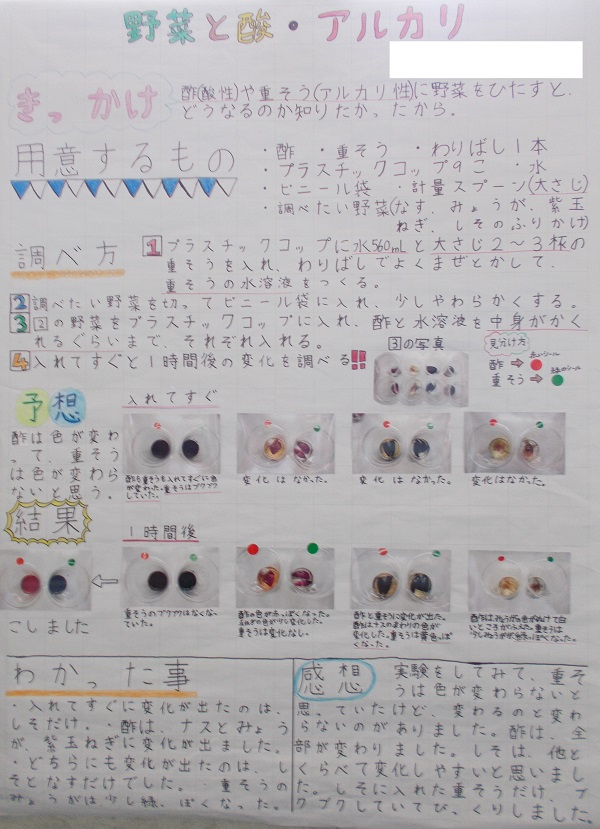 野菜と酸・アルカリ
きっかけ
酢(酸性)や重そう(アルカリ性)に野菜をひたすと、
どうなるのか知りたかったから。
用意するもの
・酢 ・重そう ・わりばし1本
・プラスチックコップ9こ ・水
・ビニール袋 ・計量スプーン(大さじ)
・調べたい野菜(なす、みょうが、紫玉
ねぎ、しそのふりかけ)
調べ方
1 プラスチックコップに水560mLと大さじ2〜3杯の
重そうを入れ、わりばしでよくまぜとかして、
重そうの水溶液をつくる。
2 調べたい野菜を切ってビニール袋に入れ、少しやわらかくする。
3 2の野菜をプラスチックコップに入れ、酢と水溶液を中身がかく
れるぐらいまで、それぞれ入れる。
4 入れてすぐと1時間後の変化を調べる!!
3の写真
見分け方
酢→
重そう→
予想
酢は色が変わ
って、重そう
は色が変わら
ないと思う。
入れてすぐ
酢も重そうも入れてすぐに色
が変わった。重そうはブクブク
していた。
変化はなかった。
変化はなかった。
変化はなかった。
結果
1時間後
こしました
重そうのブクブクはなくなっ
ていた。
酢の色が赤っぽくなった。
重そうは変化なし。
酢と重そうに変化が出た。
酢はナスのまわりの色が
変化した。重そうは黄色っぽ
くなった。
わかった事
・入れてすぐに変化が出たのは、
しそだけ。・酢は、ナスとみょう
が、紫玉ねぎに変化が出ました。
・どちらにも変化が出たのは、し
そとなすだけでした。・重そうの
みょうがは少し緑っぽくなった。
感想
実験をしてみて、重そ
うは色が変わらないと
思っていたけど、変わるのと変わ
らないのがありました。酢は、全
部が変わりました。しそは、他と
くらべて変化しやすいと思いまし
た。しそに入れた重そうだけ、ブ
クブクしていてびっくりしました。